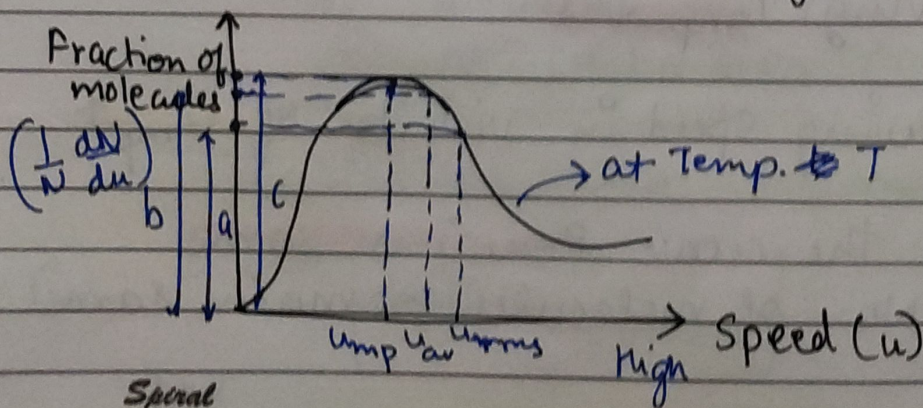 Fraction of
molecules
(1/N dN/du)
b
a
c
at Temp. T
Ump Uav Urms
High
Speed (u)
Spiral